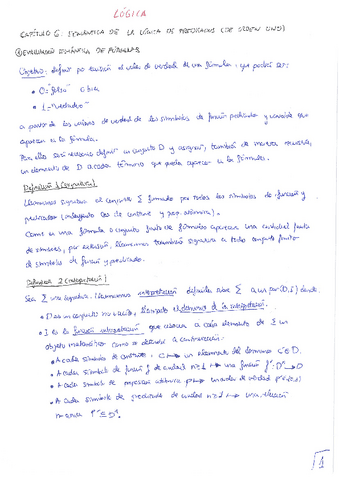 LÓGICA
CAPÍTULO 6. SEMÁNTICA DE LA LÓGICA DE PREDICADOS (DE ORDEN UNO)
EVALUACIÓN SEMÁNTICA DE FÓRMULAS
Objetivo: definir por el valor de verdad de una fórmula, que podrá ser:
• 0 "falso" o bien
• 1 "verdadero"
a partir de los valores de verdad de los símbolos de función predicado y variable que
aparecen en la fórmula.
Para ello será necesario definir un conjunto D y asignar, también de manera
un elemento de D a cada término que pueda aparecer en la fórmula.
Definición 1 (signatura)
Llamaremos signatura al conjunto Σ formado por todos los símbolos de función y
predicado (incluyendo los de constante y prop. atómica).
Como en una fórmula o conjunto finito de fórmulas aparecen una cantidad finita
de símbolos, por extensión, llamaremos también signatura a todo conjunto finito
de símbolos de función y predicado.
Definición 2 (interpretación)
Sea Σ una signatura. Llamaremos interpretación definida sobre Σ a un par (D, I) donde:
• D es un conjunto no vacío, llamado el dominio de la interpretación.
• I es la función interpretación que asocia a cada elemento de Σ un
objeto matemático como se describe a continuación:
• A cada símbolo de constante c un elemento del dominio ∈ D.
• A cada símbolo de función f de aridad n≥1 una función
• A cada símbolo de proposición atómica p un valor de verdad
• A cada símbolo de predicado de aridad n≥1 una relación
1